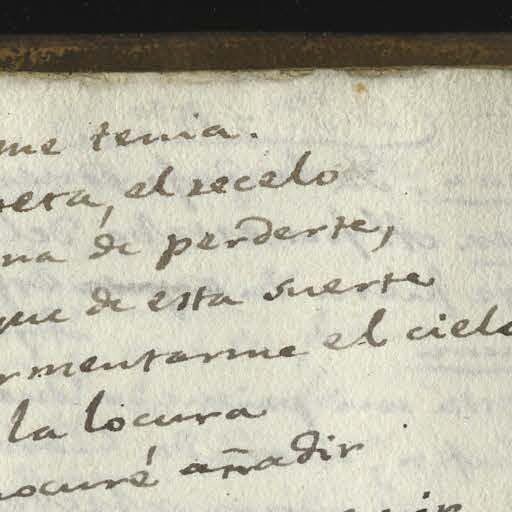 me tenia.
el recelo
na de perderte,
que de esta suerte
rmentarme el cielo
la locura
ocuré añadir